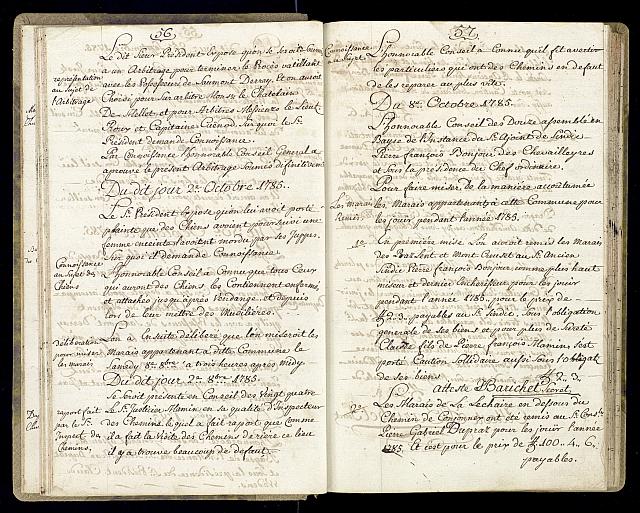 36
Le dit Sieur Président Expose qu'on se seroit
a un Arbitrage pour terminer le Procès
représentation
au sujet de
l'Arbitrage
avec les Possesseurs de Et on auroit
Choisis pour Sur arbitre Mons.r le Chatelain
De Mellet et pour Arbitres Messieurs le Lieut.
et Capitaine Cuénod, Sur quoi le S.r
Président demande Connoissance.
Par Connoissance l'honorable Conseil General a
aprouvé le present Arbitrage
Du dit jour 2.e Octobre 1785.
Le S.r Président Expose qu'on lui avoit porté
plainte que des Chiens avoient poursuivi une
femme enceinte l'avoient mordu par ses Juppes.
Sur quoi il demande Connoissance
Connoissance
au Sujet des
Chiens
L'honorable Conseil à Connu que tous Ceux
qui auront des Chiens les Contiennent enfermé
et attachés jusqu'après Vendange. et depuis
lors de leur mettre des Muselieres.
délibération
pour miser
les marais
L'on a Ensuite délibéré que l'on miseroit les
Marais appartenant à dite Commune le
Samedy 8.e 8bre à trois heures après midy
Du dit jour 2.e 8.bre 1785.
Se seroit présenté en Conseil des Vingt quatre
rapport fait
par le S.r
Inspect. du
Chemins.
Le S.r Justicier Mamin en sa qualité d'Inspecteur
des Chemins, lequel a fait raport que Comme
il a fait la Visite des Chemins de riere ce lieu
il y a trouvé beaucoup de defaut.
37
Connoissance
au Sujet.
L'honnorable Conseil à Connu qu'il fit avertir
les particuliers qui ont des Chemins en defaut
de les reparer au plus vite.
Du 8.e Octobre 1785.
L'honnorable Conseil des Douze assemblé en
de l'Instance du S.r Ajoint de Sindic
Pierre François Bonjour des Chevalleyres
et Sous la présidence du Chef ordinaire.
Pour faire miser, de la manière accoutumée
Les Marais
Remis.
les Marais appartenants à cette Commune pour
les jouir pendant l'année 1785.
1.o
En première mise L'on auroit remis les Marais
des et Mont au S.r Ancien
Sindic Pierre François Bonjour, comme plus haut
miseur et dernier Encherisseur pour les jouir
pendant l'année 1785, pour le prix de
2..3. payables au S.r Sindic, Sous l'obligation
generale de ses biens et pour plus de Sureté
Claude fils de Pierre François Mamins s'est
porté Caution Sollidaire aussi Sous l'obligat.
de ses biens 2..3.
Atteste Baruchet Secret.
2.o
Les Marais de La Lechaire en dessous du
Chemin de ont été remis au S.r Cons.r
Pierre Gabriel Dupraz pour les jouir l'année
1785. Et cest pour le prix de 100..4..6.
payables.